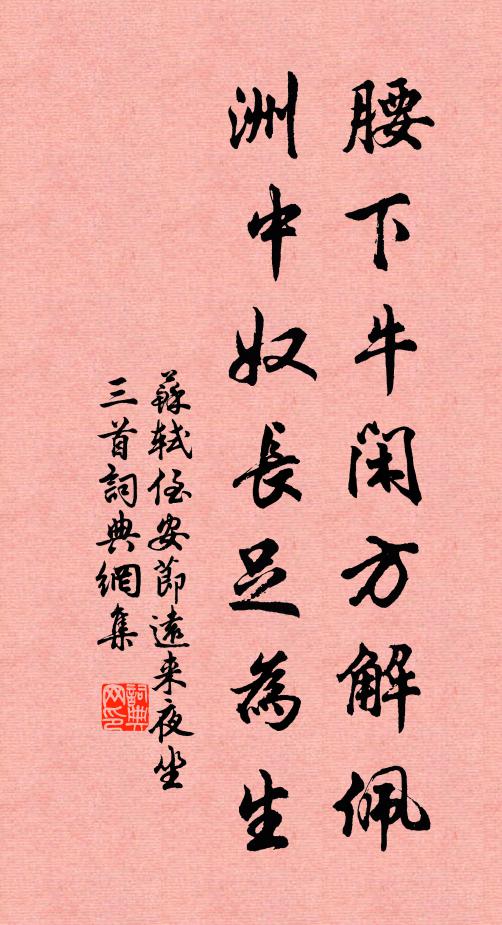 腰下牛閑方解佩
洲中奴長足為生
蘇軾侄安節遠来夜坐
三首詞典網集
詞典网印